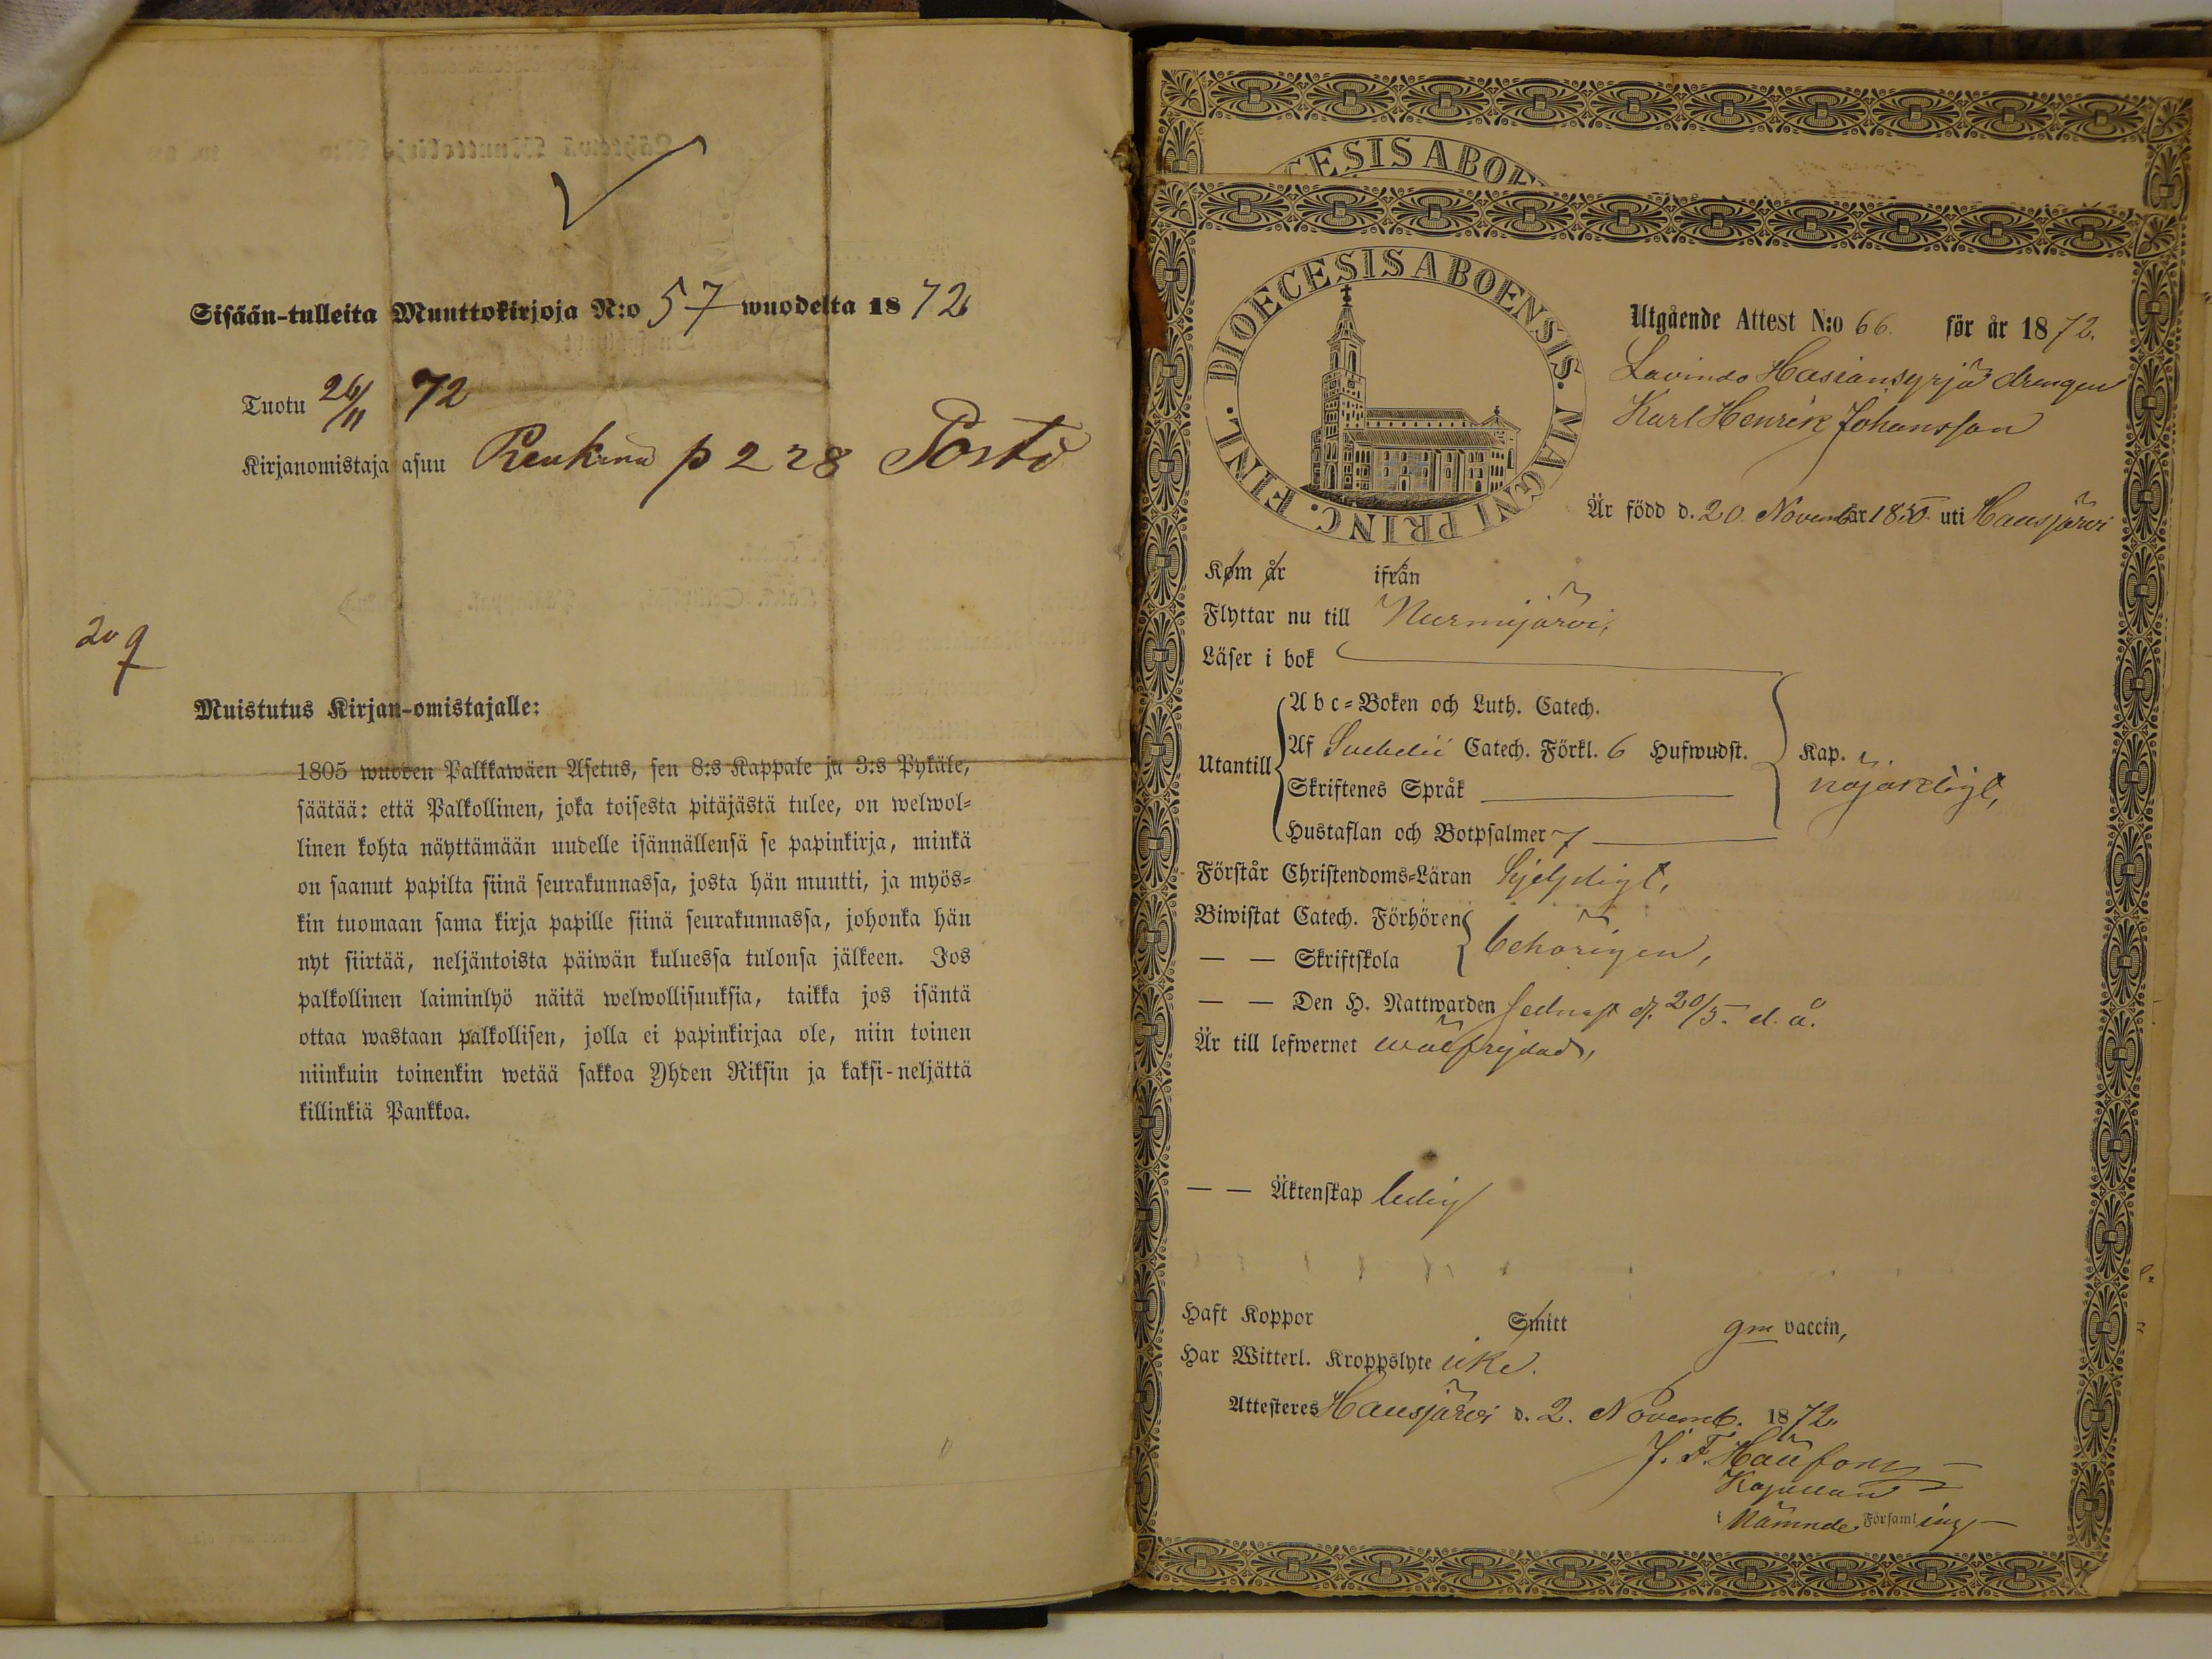 Sisään-tulleita Muuttokirjoja N:o 57 wuodelta 1872
Tuotu 26/11 72
Kirjanomistaja asuu p 228
20 9
Muistutus Kirjan-omistajalle:
1805 wuoden Palkkawäen Asetus, sen 8:s Kappale ja 3:s Pykäle,
säätää: että Palkollinen, joka toisesta pitäjästä tulee, on welwol-
linen kohta näyttämään uudelle isännällensä se papinkirja, minkä
on saanut papilta siinä seurakunnassa, josta hän muutti, ja myös-
kin tuomaan sama kirja papille siinä seurakunnassa, johonka hän
nyt siirtää, neljäntoista päiwän kuluessa tulonsa jälkeen. Jos
palkollinen laiminlyö näitä welwollisuuksia, taikka jos isäntä
ottaa wastaan palkollisen, jolla ei papinkirjaa ole, niin toinen
niinkuin toinenkin wetää sakkoa Yhden Riksin ja kaksi-neljättä
killinkiä Pankkoa.
CESIS ABOEN
DIOECESIS ABOENSIS. MAGNI PRINC. FINL.
Utgående Attest N:o 66. för år 1872.
drengen
Karl Henrik Johansson
Är född d. 20. November 1850 uti Hausjärvi
Kom år ifrån
Flyttar nu till Nurmijärvi,
Läser i bok
Utantill
A b c-Boken och Luth. Catech.
Af Svebelii Catech. Förkl. 6 Hufwudst.
Skriftenes Språk
Hustaflan och Botpsalmer 7
Kap.
nöjaktigt,
Förstår Christendoms-Läran hjelpligt,
Biwistat Catech. Förhören
— — Skriftskola
behörigen,
— — Den H. Nattwarden sednast d. 20/5. d. å.
Är till lefwernet wälfrejdad,
— — Äktenskap ledig
Haft Koppor Smitt gm vaccin,
Har Witterl. Kroppslyte icke.
Attesteres Hausjärvi d. 2. Novemb. 1872.
J. F.
Kapellan
i Nämnde Församling